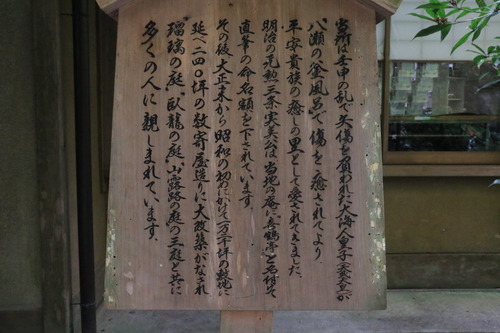 当所は壬申の乱で矢傷を負われた大海人皇子(天武)が
八瀬の釜風呂で傷を癒されてより
平安貴族の癒しの里として愛されてきました。
明治の元勲三条実美公は当地の庵に喜鶴亭と名付けて
直筆の命名額を下されています。
その後大正末から昭和の初めにかけて一万千坪の敷地に
延べ二四〇坪の数寄屋造りに大改築がなされ
瑠璃の庭、臥龍の庭、山露路の庭の三庭と共に
多くの人に親しまれています。